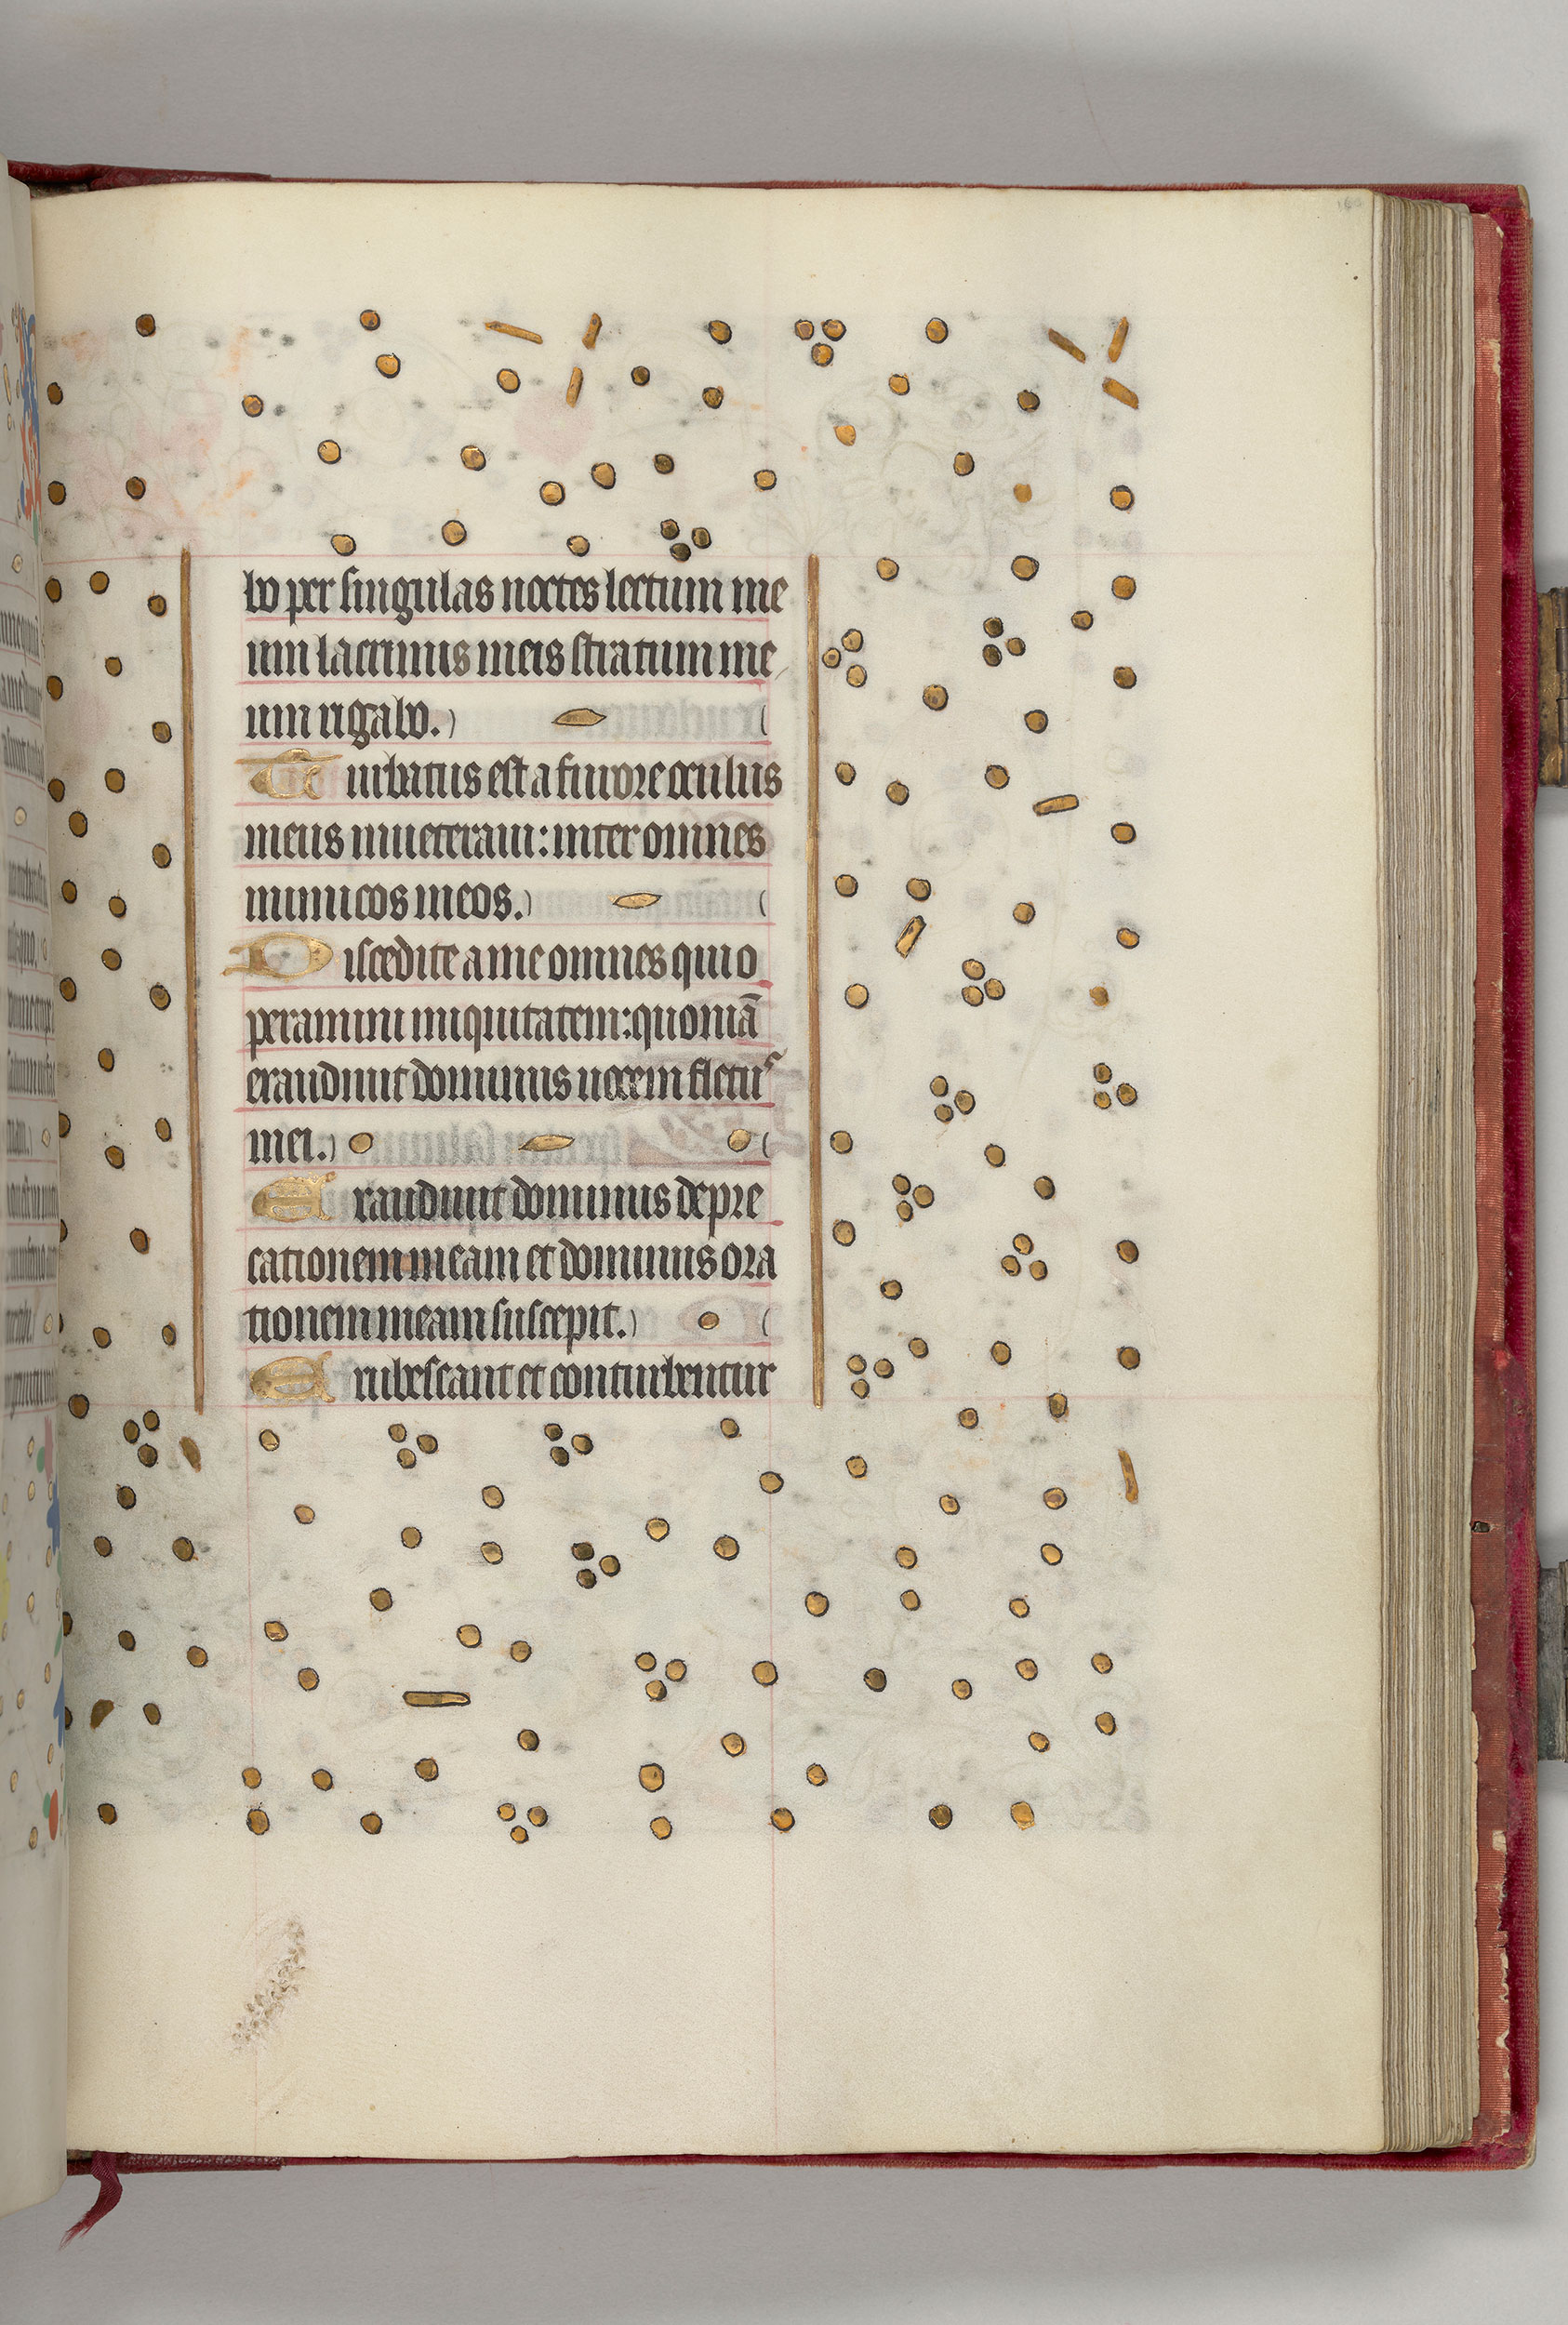 bo per singulas noctes lectum me
um lacrimis meis stratum me
um rigabo.
Turbatus est a furore oculus
meus inueteraui: inter omnes
inimicos meos.
Discedite a me omnes qui o
peramini iniquitatem: quoniā
exaudiuit dominus uocem fletus
mei.
Exaudiuit dominus depre
cationem meam et dominus ora
tionem meam suscepit.
Erubescant et conturbentur